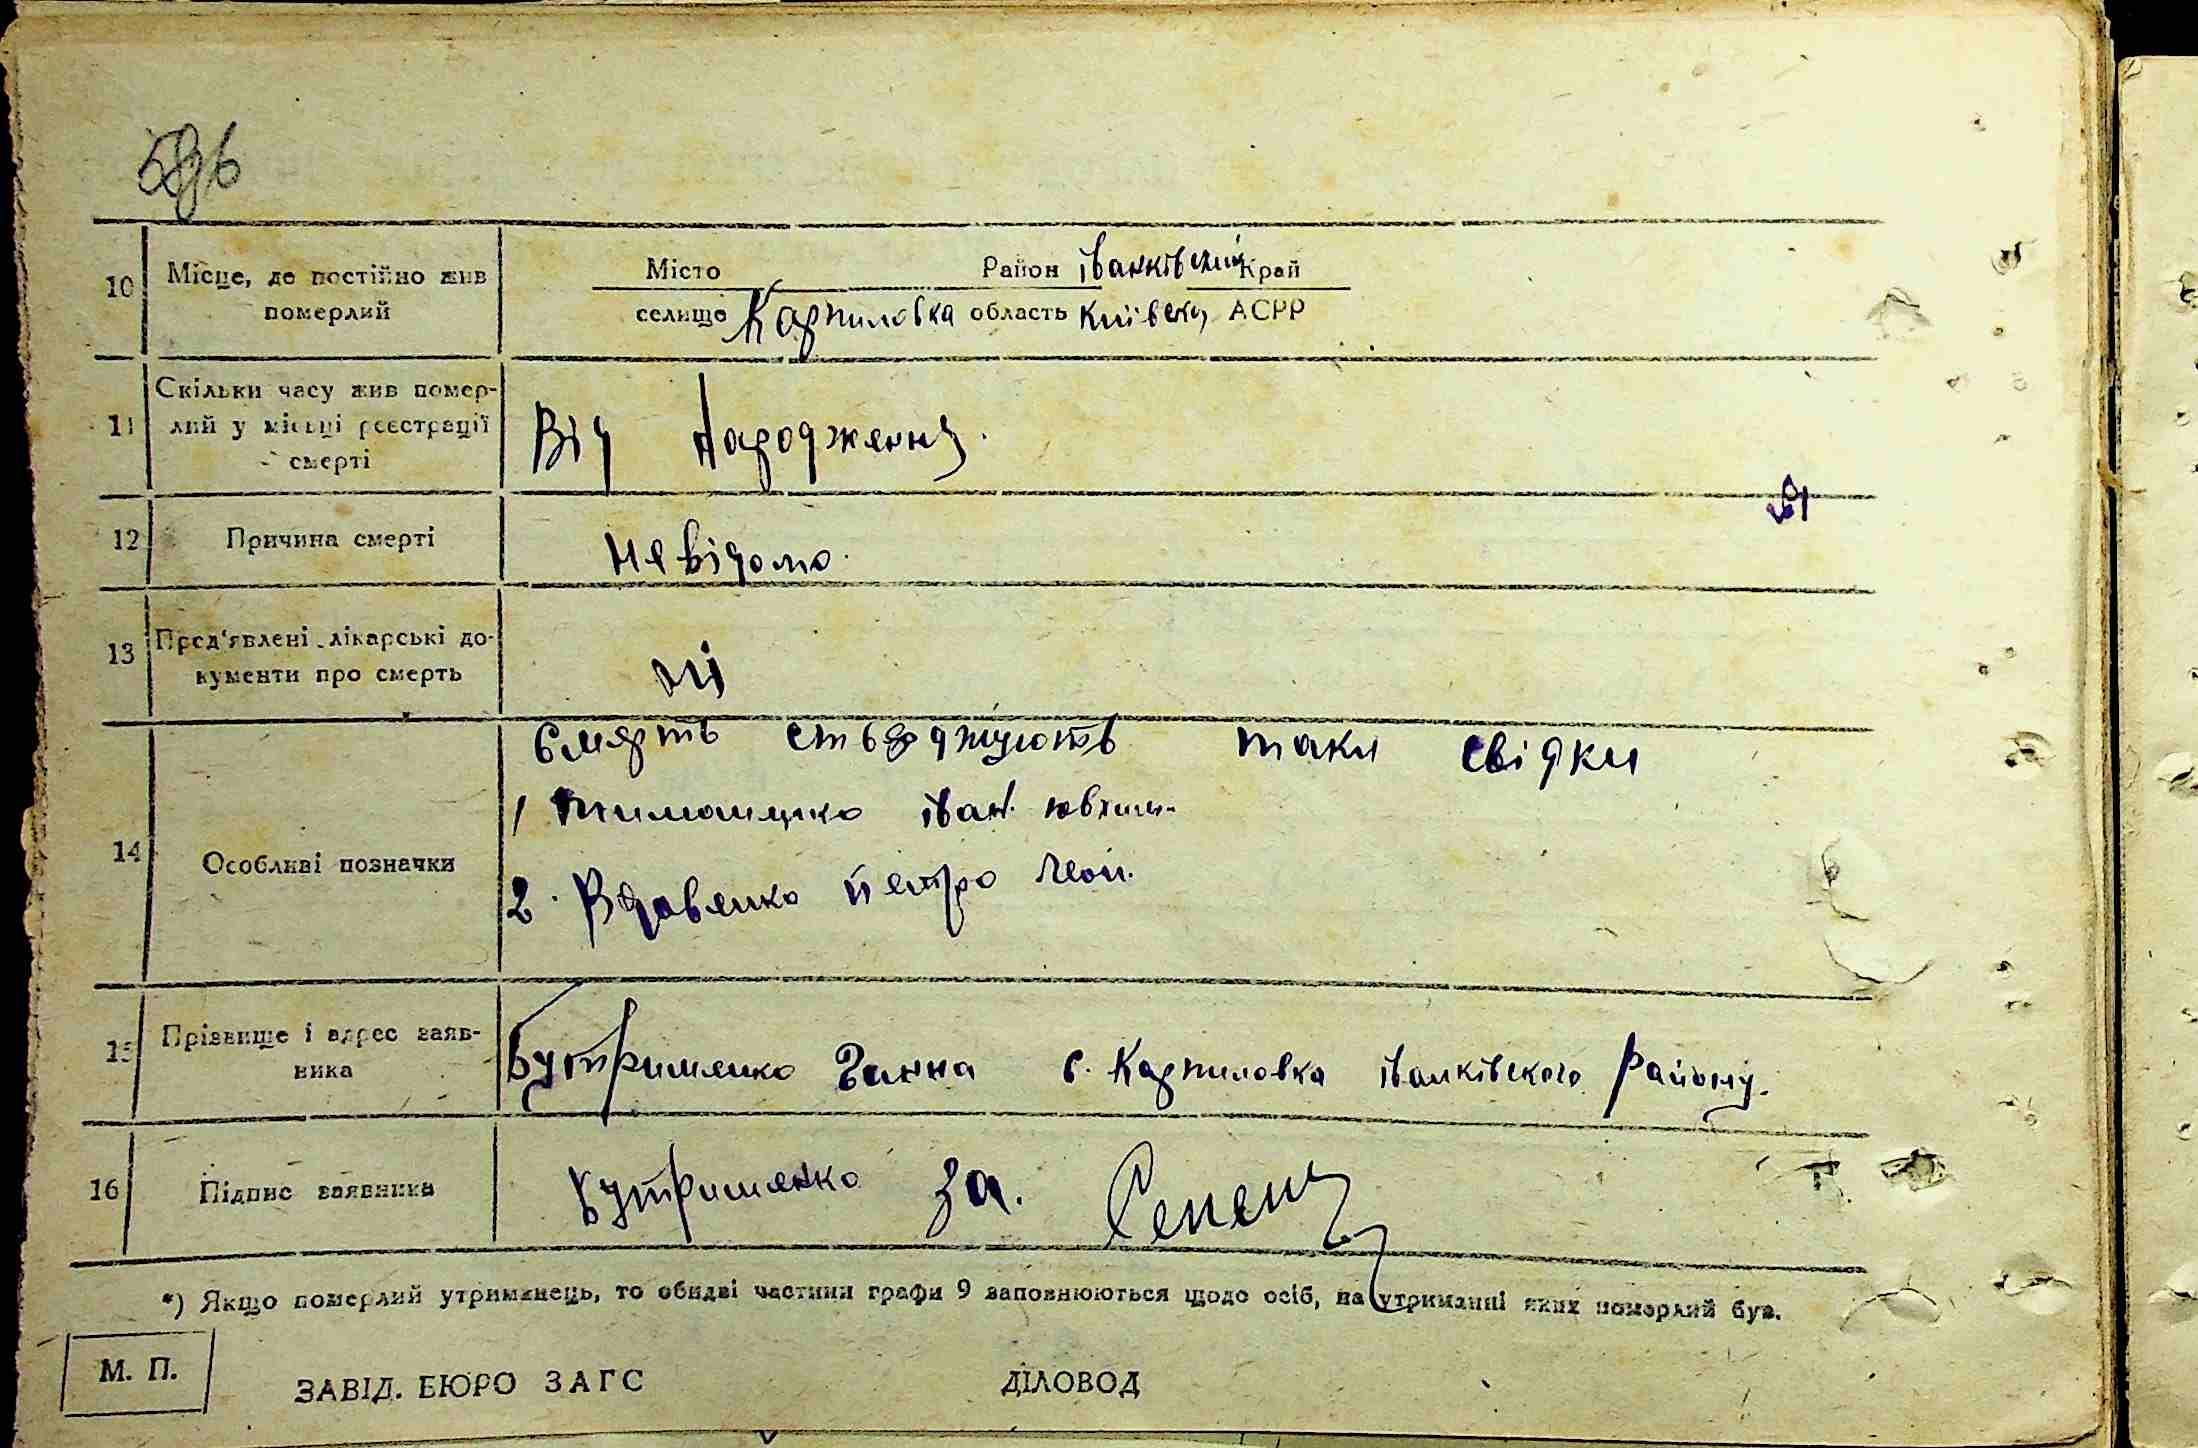 10 Місце, де постійно жив
померлий
Місто Район іванківский Край
селище Карпиловка область київску АСРР
11 Скільки часу жив помер-
лий у місці реєстрації
смерті
Від народження.
12 Причина смерті
невідомо.
13 Пред'явлені лікарські до-
кументи про смерть
ні
14 Особливі позначки
Смерть стверджують таки свідки
1 Тимошенко іван. ювхим.
2. Вдовенко петро
15 Прізвище і адрес заяв-
ника
Бутрименко Ганна с. Карпиловка іванківского району.
16 Підпис заявника
Бутрименко за.
*) Якщо померлий утриманець, то обидві частини графи 9 заповнюються щодо осіб, на утриманні яких померлий був.
М. П.
ЗАВІД. БЮРО ЗАГС ДІЛОВОД